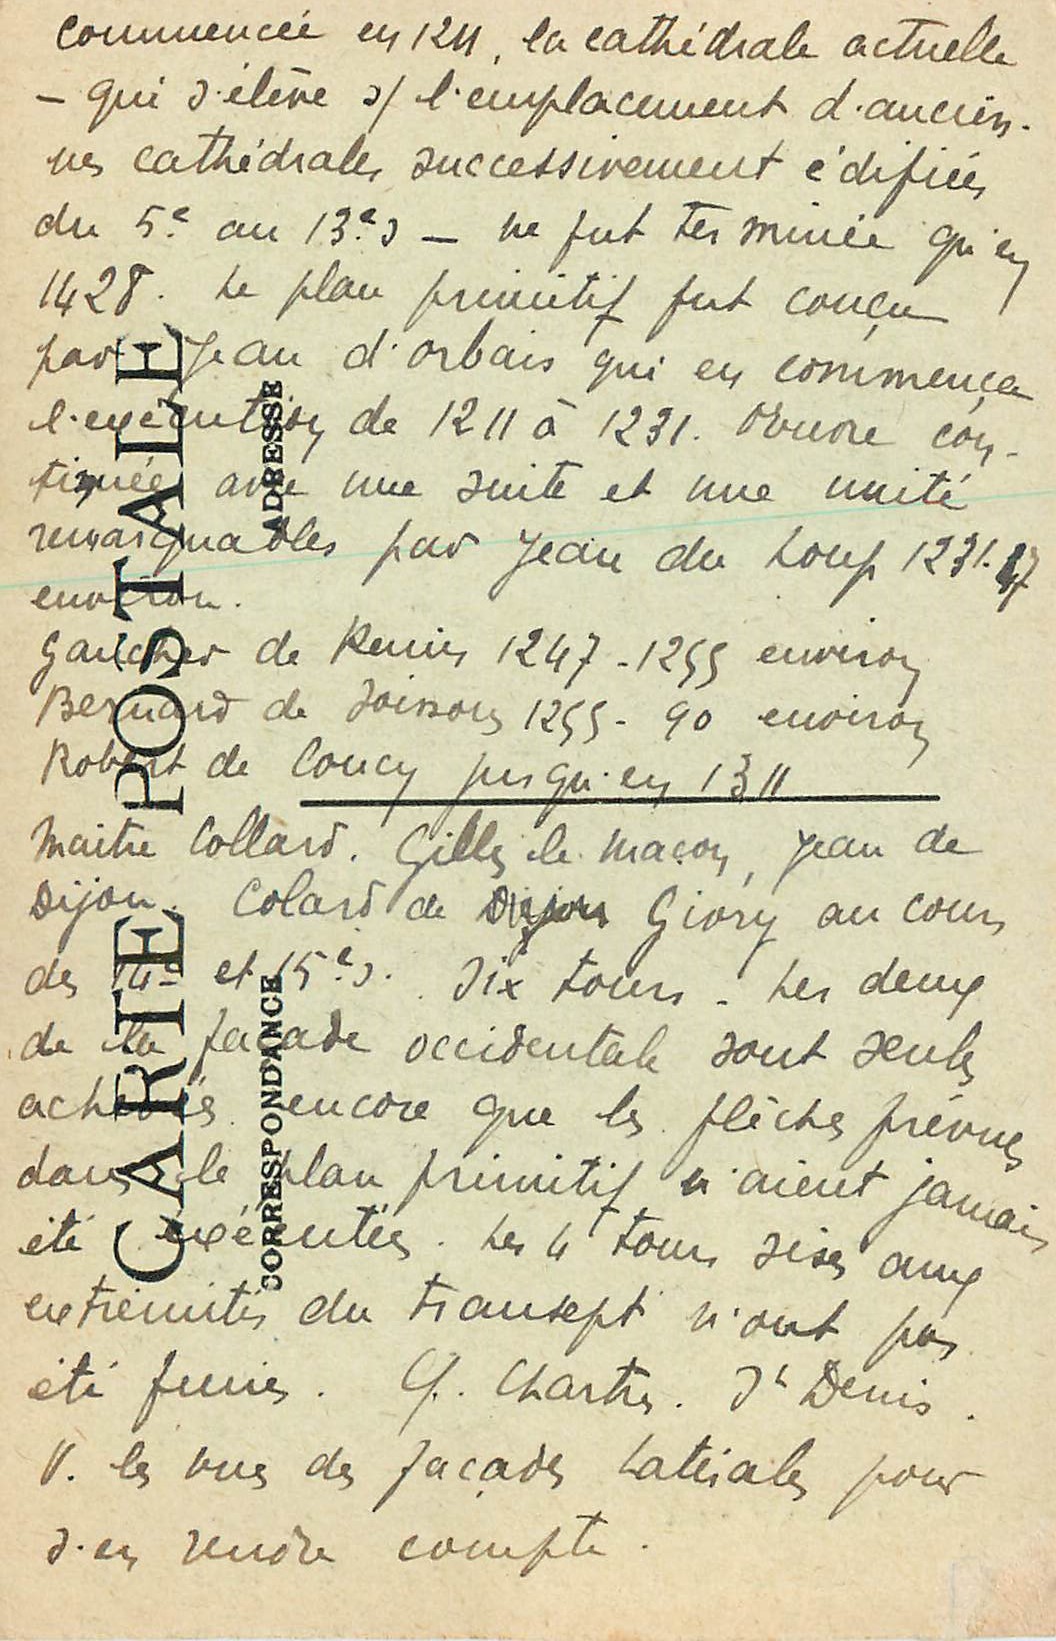 Commencée en 1211, la cathédrale actuelle
— qui s'élève s/ l'emplacement d'ancien-
nes cathédrales successivement édifiées
du 5e au 13e s — ne fut terminée qu'en
1428. Le plan primitif fut conçu
par Jean d'Orbais qui en commença
l'exécution de 1211 à 1231. Oeuvre con-
tinuée avec une suite et une unité
remarquables par Jean du Loup 1231.47
environ.
Gaucher de Reims 1247-1255 environ
Bernard de Soissons 1255-90 environ
Robert de Coucy jusqu'en 1311
Maitre Collard. Gilles le maçon, Jean de
Dijon. Colard de Dijon Givry au cours
des 14e et 15e s. Six tours - Les deux
de la façade occidentale sont seules
achevées encore que les flèches prévues
dans le plan primitif n'aient jamais
été exécutées. Les 4 tours sises aux
extrémités du transept n'ont pas
été finies. Cf. Chartres. St Denis.
V. les vues des façades latérales pour
s'en rendre compte.
CARTE POSTALE
CORRESPONDANCE
ADRESSE